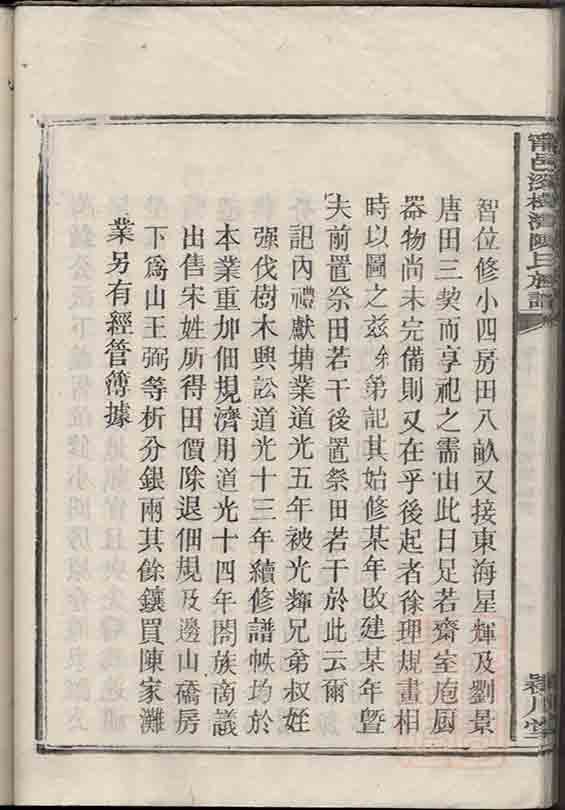 智位修小四房田八畝又接東海星輝及劉景
唐田三契而享祀之需由此日足若齋室庖厨
器物尚未完備則又在乎後起者徐理規畫相
時以圖之茲余弟記其始修某年改建某年曁
夫前置祭田若干後置祭田若干於此云爾
記內禮獻塘業道光五年被光輝兄弟叔姪
強伐樹木興訟道光十三年續修譜帙均於
本業重加佃規濟用道光十四年閤族商議
出售宋姓所得田價除退佃規及邊山礄房
下爲山王弼等析分銀兩其餘鑲買陳家灘
業另有經管簿據